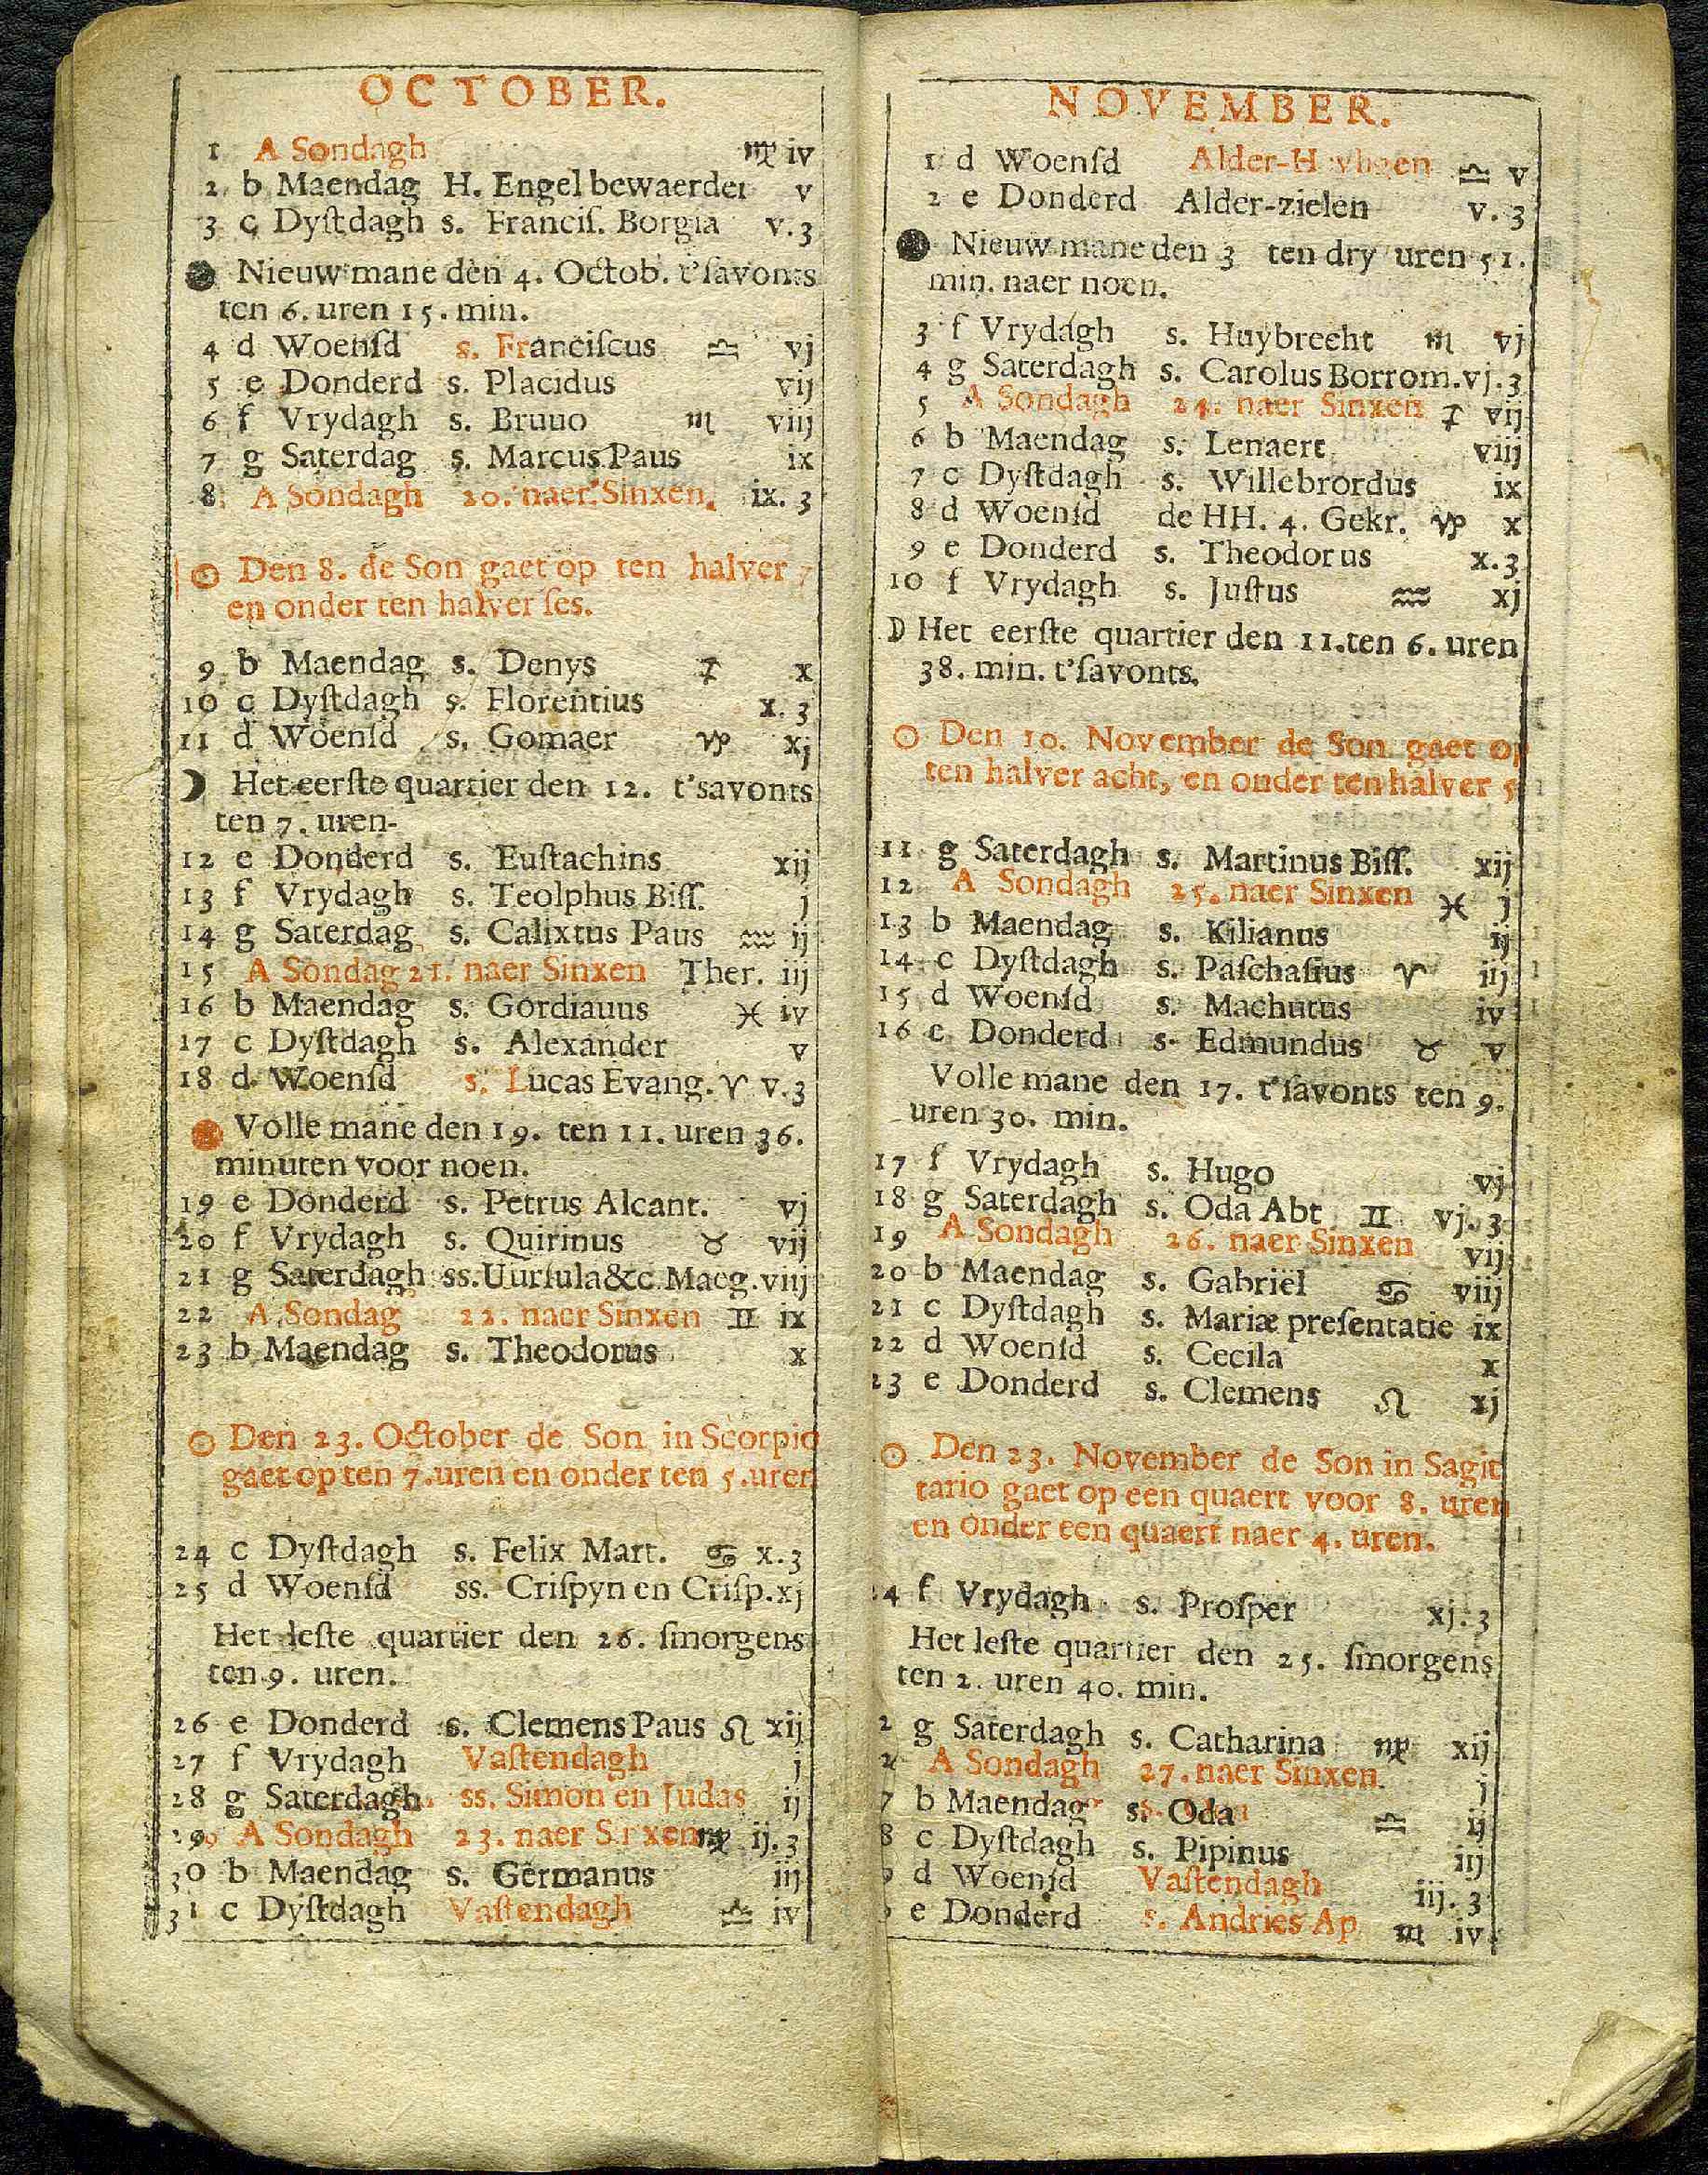 OCTOBER.
1 A Sondagh ♍ iv
2 b Maendag H. Engel bewaerder v
3 c Dyſtdagh s. Franciſ. Borgia v.3
Nieuw mane den 4. Octob. t'ſavonts
ten 6. uren 15. min.
4 d Woenſd s. Franciſcus ♎ vj
5 e Donderd s. Placidus vij
6 f Vrydagh s. Bruuo ♏ viij
7 g Saterdag s. Marcus Paus ix
8 A Sondagh 20. naer Sinxen. ix.3
☉ Den 8. de Son gaet op ten halver 7
en onder ten halver ſes.
9 b Maendag s. Denys ♐ x
10 c Dyſtdagh s. Florentius x.3
11 d Woenſd s. Gomaer ♑ xj
☽ Het eerſte quartier den 12. t'savonts
ten 7. uren-
12 e Donderd s. Euſtachins xij
13 f Vrydagh s. Teolphus Biſſ. j
14 g Saterdag s. Calixtus Paus ♒ ij
15 A Sondag 21. naer Sinxen Ther. iij
16 b Maendag s. Gordiauus ♓ iv
17 c Dyſtdagh s. Alexander v
18 d Woenſd s. Lucas Evang. ♈ v.3
Volle mane den 19. ten 11. uren 36.
minuten voor noen.
19 e Donderd s. Petrus Alcant. vj
20 f Vrydagh s. Quirinus ♉ vij
21 g Saterdagh ss. Uurſula &c. Maeg. viij
22 A Sondag 22. naer Sinxen ♊ ix
23 b Maendag s. Theodorus x
☉ Den 23. October de Son in Scorpio
gaet op ten 7. uren en onder ten 5. uren
24 c Dyſtdagh s. Felix Mart. ♋ x.3
25 d Woenſd ss. Criſpyn en Criſp. xj
Het leſte quartier den 26. ſmorgens
ten 9. uren.
26 e Donderd s. Clemens Paus ♌ xij
27 f Vrydagh Vaſtendagh j
28 g Saterdagh ss. Simon en Judas ij
29 A Sondagh 23. naer ♍ ij.3
30 b Maendag s. Germanus iij
31 c Dyſtdagh Vaſtendagh ♎ iv
NOVEMBER.
1 d Woenſd ♎ v
2 e Donderd Alder-zielen v.3
Nieuw mane den 3 ten dry uren 51.
min. naer noen.
3 f Vrydagh s. Huybrecht ♏ vj
4 g Saterdagh s. Carolus Borrom. vj.3
5 A Sondagh 24. naer Sinxen ♐ vij
6 b Maendag s. Lenaert viij
7 c Dyſtdagh s. Willebrordus ix
8 d Woenſd de HH. 4. Gekr. ♑ x
9 e Donderd s. Theodorus x.3
10 f Vrydagh s. Juſtus ♒ xj
☽ Het eerſte quartier den 11. ten 6. uren
38. min. t'ſavonts.
☉ Den 10. November de Son gaet op
ten halver acht, en onder ten halver 5
11 g Saterdagh s. Martinus Biſſ. xij
12 A Sondagh 25. naer Sinxen ♓ j
13 b Maendag s. Kilianus ij
14 c Dyſtdagh s. Paſchaſius ♈ iij
15 d Woenſd s. Machutus iv
16 e Donderd s. Edmundus ♉ v
Volle mane den 17. t'ſavonts ten 9.
uren 30. min.
17 f Vrydagh s. Hugo vj
18 g Saterdagh s. Oda Abt ♊ vj.3
19 A Sondagh 26. naer Sinxen vij
20 b Maendag s. Gabriël ♋ viij
21 c Dyſtdagh s. Mariæ preſentatie ix
22 d Woenſd s. Cecila x
23 e Donderd s. Clemens ♌ xj
☉ Den 23. November de Son in Sagit
tario gaet op een quaert voor 8. uren
en onder een quaert naer 4. uren.
4 f Vrydagh s. Proſper xj.3
Het leſte quartier den 25. ſmorgens
ten 2. uren 40. min.
2 g Saterdagh s. Catharina ♍ xij
2 A Sondagh 27. naer Sinxen. j
7 b Maendag s. Oda ♎ ij
8 c Dyſtdagh s. Pipinus iij
d Woenſd Vaſtendagh iij.3
e Donderd s. Andries Ap ♏ iv